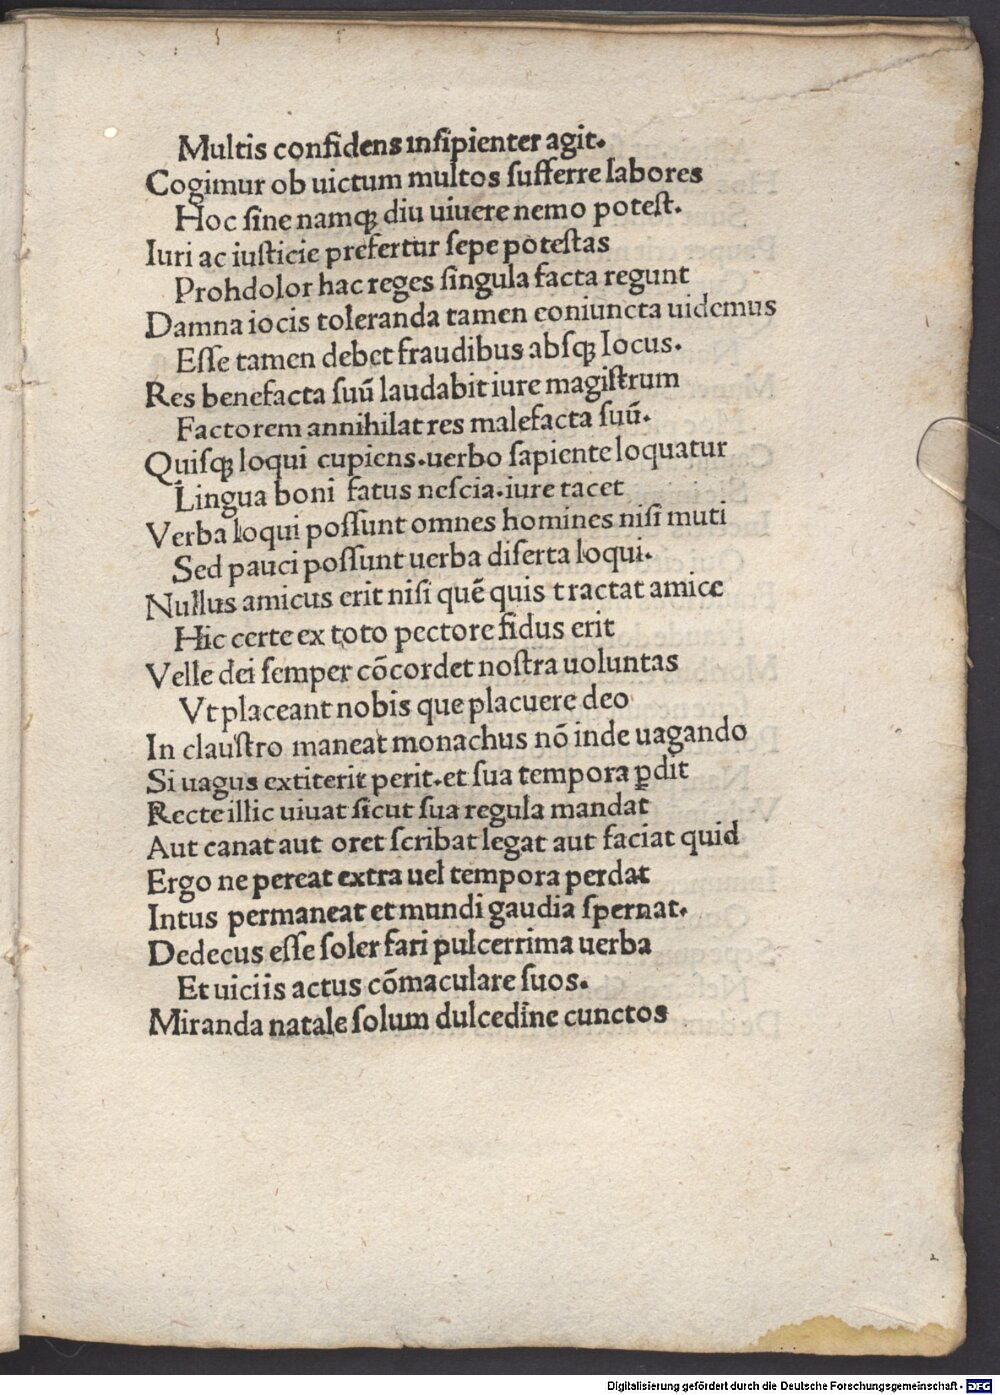 Multis confidens insipienter agit.
Cogimur ob uictum multos sufferre labores
Hoc sine namqꝫ diu uiuere nemo potest.
Iuri ac iusticie prefertur sepe potestas
Prohdolor hac reges singula facta regunt
Damna iocis toleranda tamen coniuncta uidemus
Esse tamen debet fraudibus absqꝫ locus.
Res benefacta suū laudabit iure magistrum
Factorem annihilat res malefacta suū.
Quisqꝫ loqui cupiens.uerbo sapiente loquatur
Lingua boni fatus nescia.iure tacet
Verba loqui possunt omnes homines nisi muti
Sed pauci possunt uerba diserta loqui.
Nullus amicus erit nisi quē quis tractat amice
Hic certe ex toto pectore fidus erit
Velle dei semper cōcordet nostra uoluntas
Vt placeant nobis que placuere deo
In claustro maneat monachus nō inde uagando
Si uagus extiterit perit.et sua tempora ꝑdit
Recte illic uiuat sicut sua regula mandat
Aut canat aut oret scribat legat aut faciat quid
Ergo ne pereat extra uel tempora perdat
Intus permaneat et mundi gaudia spernat.
Dedecus esse soler fari pulcerrima uerba
Et uiciis actus cōmaculare suos.
Miranda natale solum dulcedine cunctos
Digitalisierung gefördert durch die Deutsche Forschungsgemeinschaft - DFG